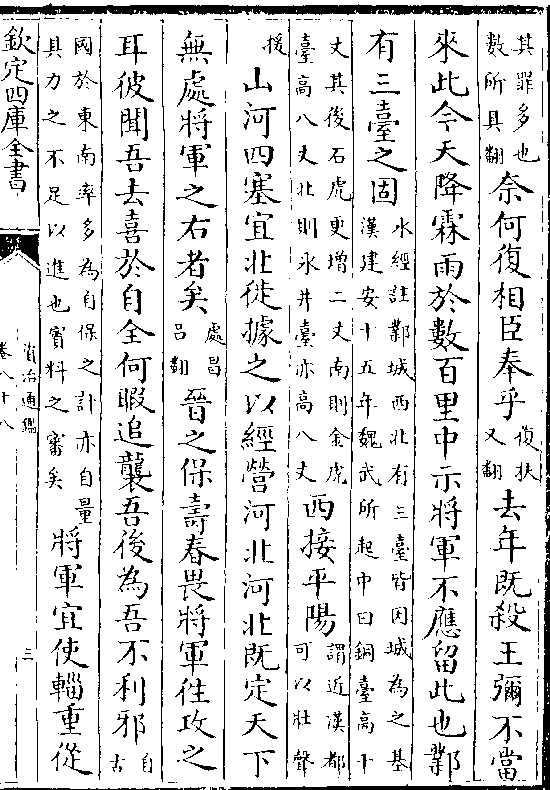 其罪多也數所具翻奈何復相臣奉乎復扶又翻去年既殺王彌不當
來此今天降霖雨於數百里中示將軍不應留此也鄴
有三臺之固水經註鄴城西北有三臺皆因城為之基漢建安十五年魏武所起中曰銅臺高十
丈其後石虎更增二丈南則金虎臺高八丈北則氷井臺亦高八丈西接平陽謂近漢都可以壯聲
援山河四塞宜北徙據之以經營河北河北既定天下
無處將軍之右者矣處昌呂翻晉之保壽春畏將軍徃攻之
耳彼聞吾去喜於自全何暇追襲吾後為吾不利邪自古
國於東南率多為自保之計亦自量其力之不足以進也賓料之審矣將軍宜使輜重從
欽定四庫全書
資治通鑑
卷八十八
三